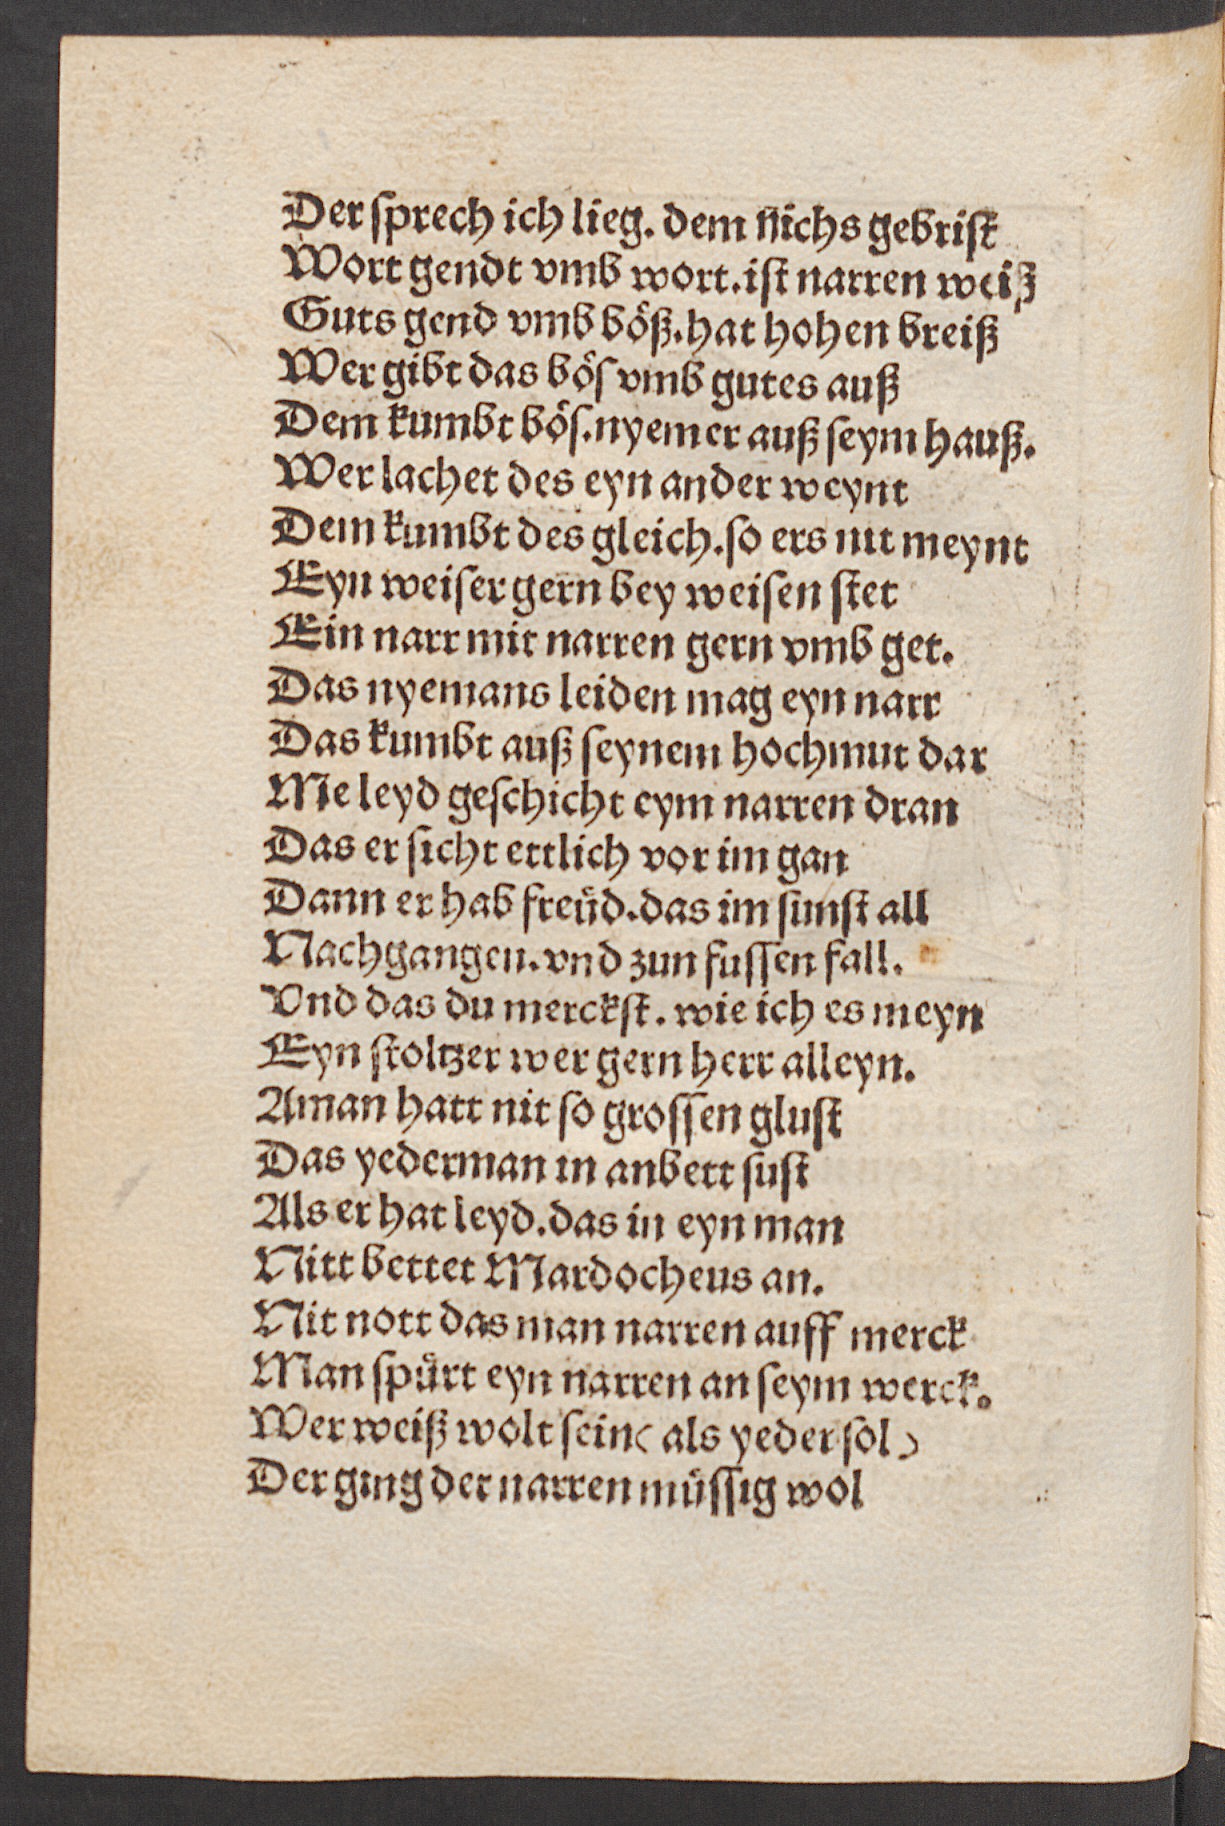 Der ſprech ich lieg. dem nichs gebriſt
Wort gendt vmb wort. iſt narren weiß
Guts gend vmb böß. hat hohen breiß
Wer gibt das böſ vmb gutes auß
Dem kumbt böſ. nyemer auß ſeym hauß.
Wer lachet des eyn ander weynt
Dem kumbt des gleich. ſo ers nit meynt
Eyn weiſer gern bey weiſen ſtet
Ein narr mit narren gern vmb get.
Das nyemans leiden mag eyn narr
Das kumbt auß ſeynem hochmut dar
Me leyd geſchicht eym narren dran
Das er ſicht ettlich vor im gan
Dann er hab freüd. das im ſunſt all
Nachgangen. vnd zun fuſſen fall.
Vnd das du merckſt. wie ich es meyn
Eyn ſtoltzer wer gern herr alleyn.
Aman hatt nit ſo groſſen gluſt
Das yederman in anbett ſuſt
Als er hat leyd. das in eyn man
Nitt bettet Mardocheus an.
Nit nott das man narren auff merck
Man ſpürt eyn narren an ſeym werck.
Wer weiß wolt ſein (als yeder ſol)
Der ging der narren müſſig wol